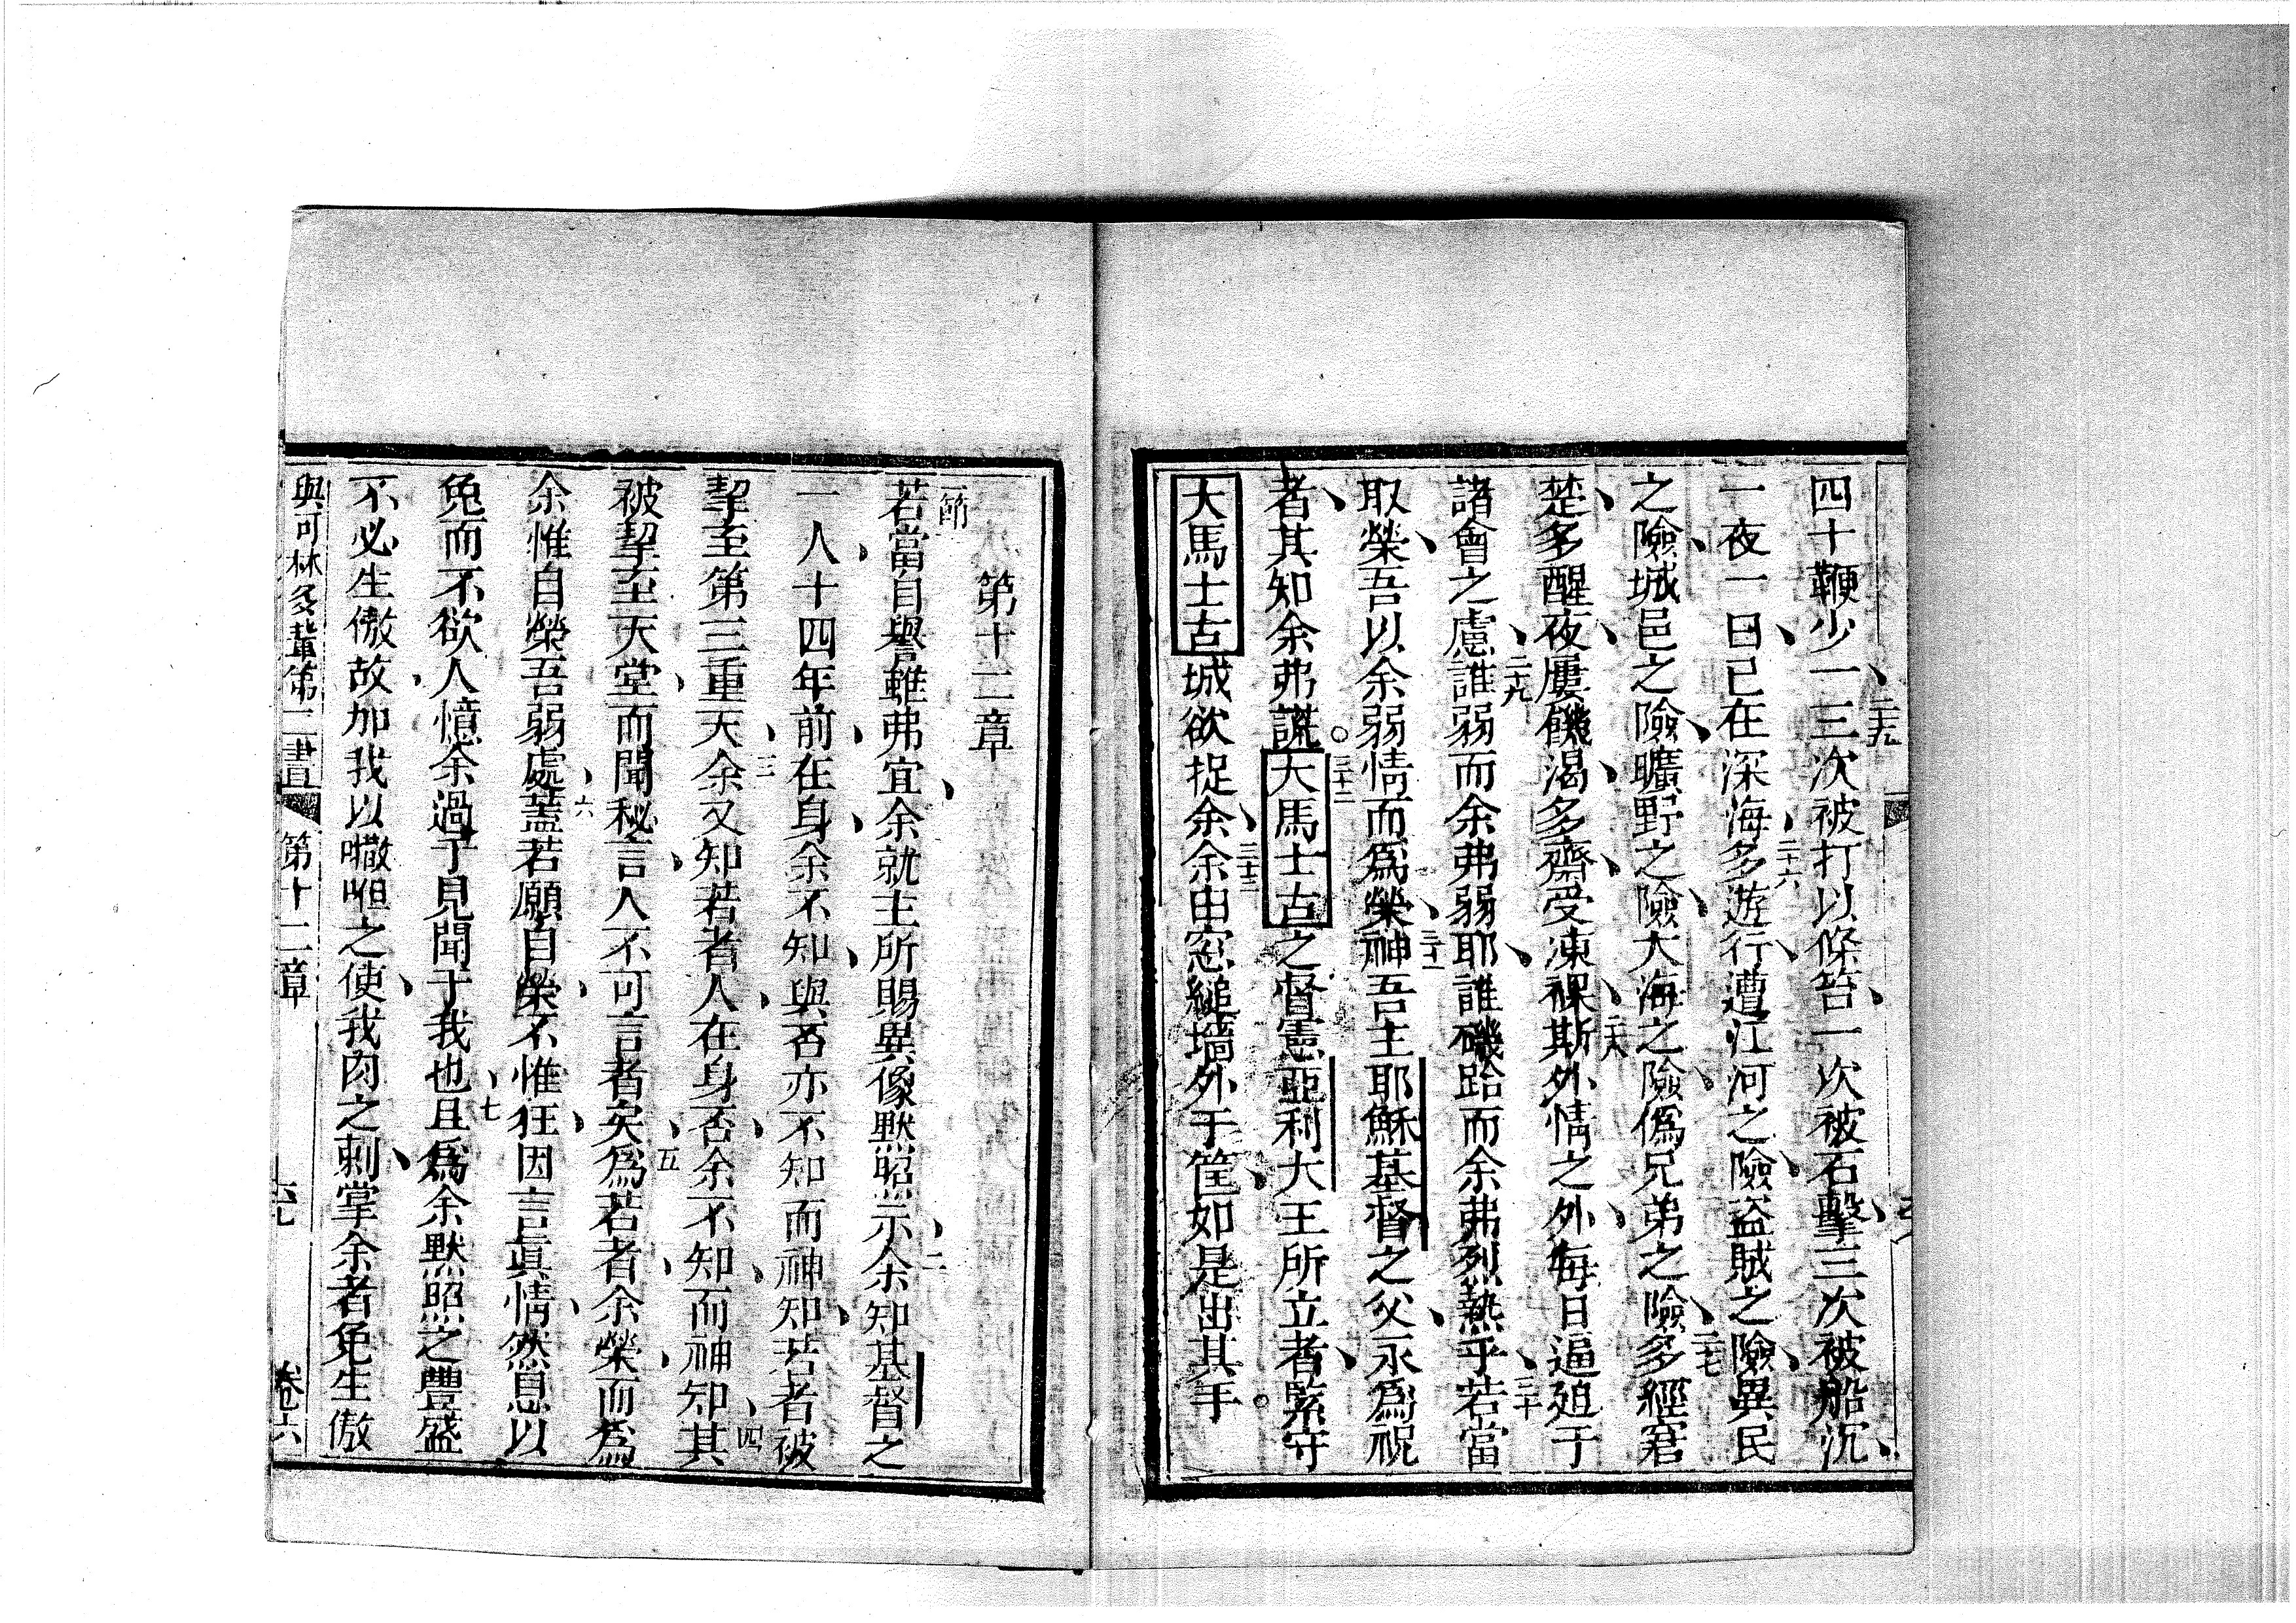 四十鞭少一、二十五三次被打以條笞、一次被石擊、三次被船沉、
一夜一日、已在深海、二十六多遊行遭江河之險、盜賊之險、異民
之險、城邑之險、曠野之險、大海之險、僞兄弟之險、二十七多經窘
楚、多醒夜、屢饑渴、多齋、受凍裸、二十八斯外情之外、每日逼廹于
諸會之慮、二十九誰弱而余弗弱耶、誰磯跲而余弗烈熱乎、三十若當
取榮、吾以余弱情而爲榮、三十一神吾主耶穌基督之父、永爲祝
者、其知余弗謊。三十二大馬士古之督憲亞利大王所立者、緊守
大馬士古城欲捉余、三十三余由窓縋墻外于筐、如是出其手。
第十二章
一節
若當自譽雖弗宜、余就主所賜異像默照示、二余知基督之
一人、十四年前、在身、余不知、與否亦不知、而神知、若者被
挈至第三重天、三余又知若者人、在身否、余不知、而神知、四其
被挈至天堂、而聞秘言、人不可言者矣、五爲若者、余榮、而爲
余惟自榮吾弱處、六蓋若願自榮、不惟狂、因言眞情、然息以
免而不欲人憶余過于見聞于我也、七且爲余默照之豐盛
不必生傲、故加我以㘔呾之使、我肉之刺、掌余者免生傲
與可林多輩第二書 第十二章 六七 卷六